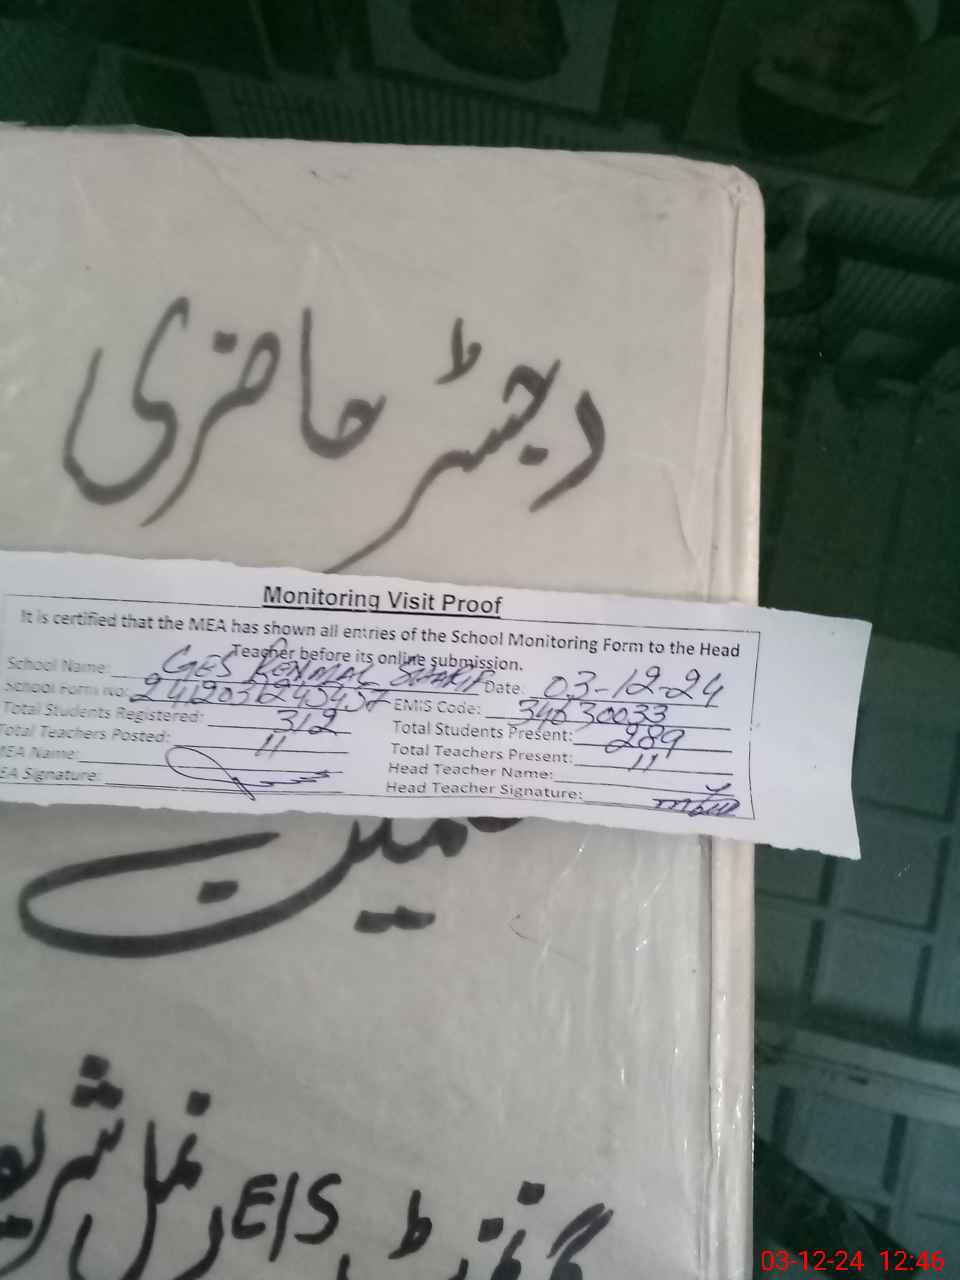 رجسٹر حاضری
Monitoring Visit Proof
It is certified that the MEA has shown all entries of the School Monitoring Form to the Head
Teacher before its online submission.
School Name: GES RENMAL SHARIF Date: 03-12-24
School Form No: EMIS Code: 34630033
Total Students Registered: 312 Total Students Present: 289
Total Teachers Posted: 11 Total Teachers Present: 11
MEA Name: Head Teacher Name:
EA Signature: Head Teacher Signature:
گورنمنٹ E/S رنمل شریف
03-12-24 12:46